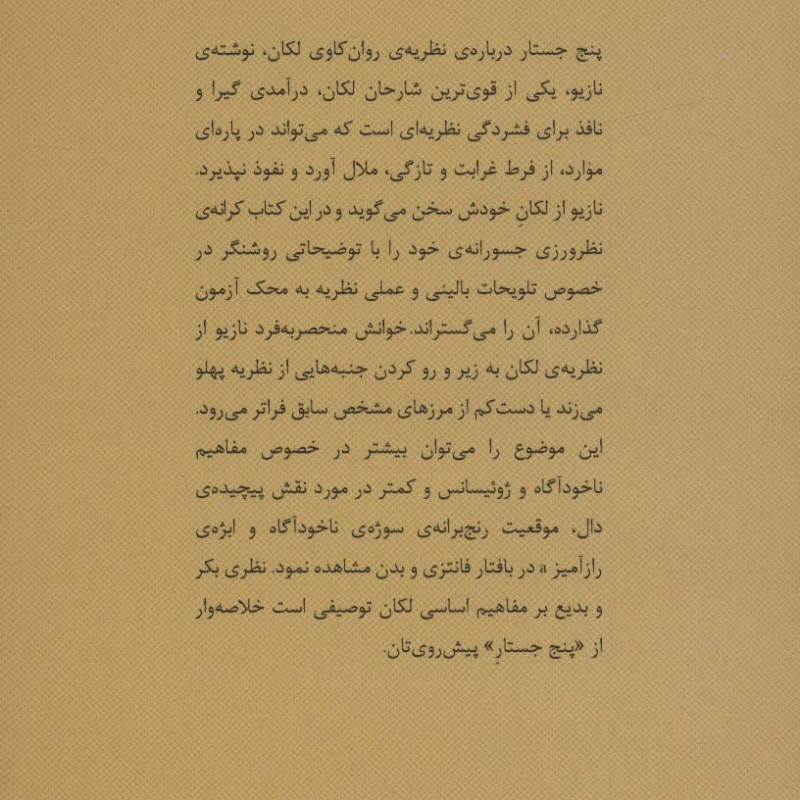 پنج جستار درباره‌ی نظریه‌ی روان‌کاوی لکان، نوشته‌ی
نازیو، یکی از قوی‌ترین شارحان لکان، درآمدی گیرا و
نافذ برای فشردگی نظریه‌ای است که می‌تواند در پاره‌ای
موارد، از فرط غرابت و تازگی، ملال آورد و نفوذ نپذیرد.
نازیو از لکانِ خودش سخن می‌گوید و در این کتاب کرانه‌ی
نظرورزی جسورانه‌ی خود را با توضیحاتی روشنگر در
خصوص تلویحات بالینی و عملی نظریه به محک آزمون
گذارده، آن را می‌گستراند. خوانش منحصربه‌فرد نازیو از
نظریه‌ی لکان به زیر و رو کردن جنبه‌هایی از نظریه پهلو
می‌زند یا دست‌کم از مرزهای مشخص سابق فراتر می‌رود.
این موضوع را می‌توان بیشتر در خصوص مفاهیم
ناخودآگاه و ژوئیسانس و کمتر در مورد نقش پیچیده‌ی
دال، موقعیت رنج‌برانه‌ی سوژه‌ی ناخودآگاه و ابژه‌ی
رازآمیز a در بافتار فانتزی و بدن مشاهده نمود. نظری بکر
و بدیع بر مفاهیم اساسی لکان توصیفی است خلاصه‌وار
از «پنج جستارِ» پیش‌روی‌تان.